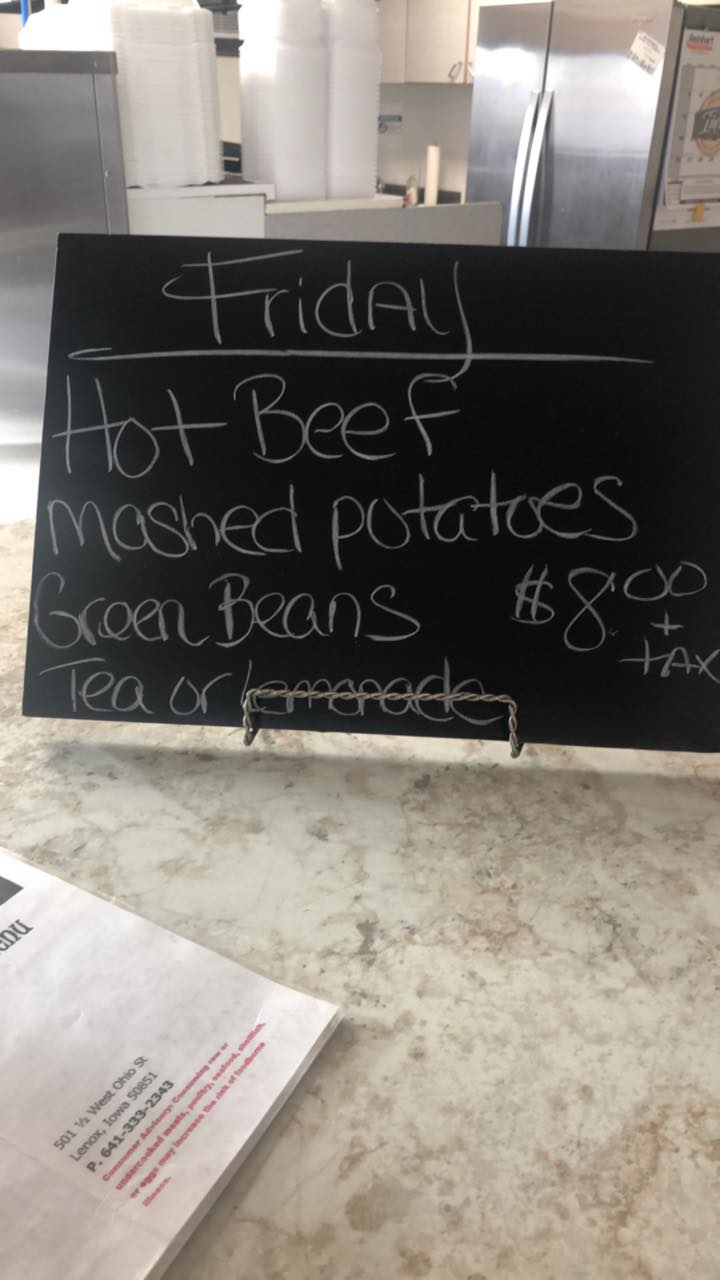 Friday
Hot Beef
mashed potatoes
Green Beans $8.00
+
tAX
Tea or lemonade
501 ½ West Ohio St
Lenox, Iowa 50851
P. 641-333-2343
Consumer Advisory: Consuming raw or
undercooked meats, poultry, seafood, shellfish,
or eggs may increase the risk of foodborne
illness.
Reinhart